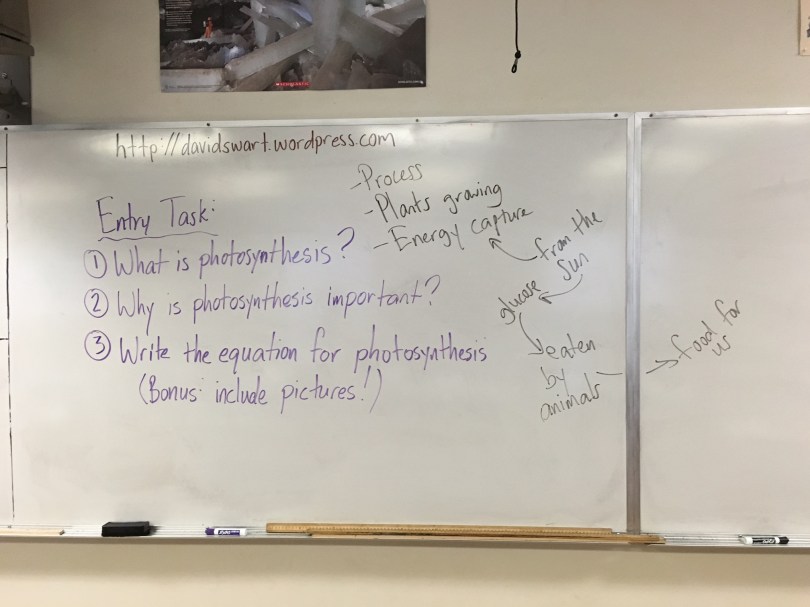 http://davidswart.wordpress.com
Entry Task:
① What is photosynthesis?
② Why is photosynthesis important?
③ Write the equation for photosynthesis
(Bonus: include pictures!)
-Process
-Plants growing
-Energy capture
from the
sun
glucose
eaten
by
animals
food for
us
SCHOLASTIC
EXPO